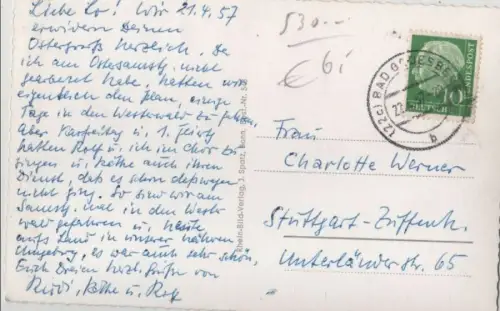 Liebe Lo! Wir 21.4.57
erwidern Deinen
Ostergruß herzlich. Da
ich am Ostersamst. nicht
gearbeitet habe, hatten wir
eigentlich den Plan, einige
Tage in den Westerwald zu fahren,
aber Karfreitag u. 1. Feiert.
hatten Rolf u. ich im Chor zu
singen u. Käthe auch ihren
Dienst, daß es schon deswegen
nicht ging. So sind wir am
Samstg. mal in den Wester-
wald gefahren u. heute
aufs Land in unserer näheren
Umgebg., es war auch sehr schön.
Euch Dreien herzl. Grüße von
Rudi, Käthe u. Rolf
Rhein-Bild-Verlag, J. Spatz, Bonn
530.--
€ 6i
(22c) BAD GODESBERG
b
DEUTSCHE BUNDESPOST
10
Frau
Charlotte Werner
Stuttgart-Zuffenh.
Unterländerstr. 65